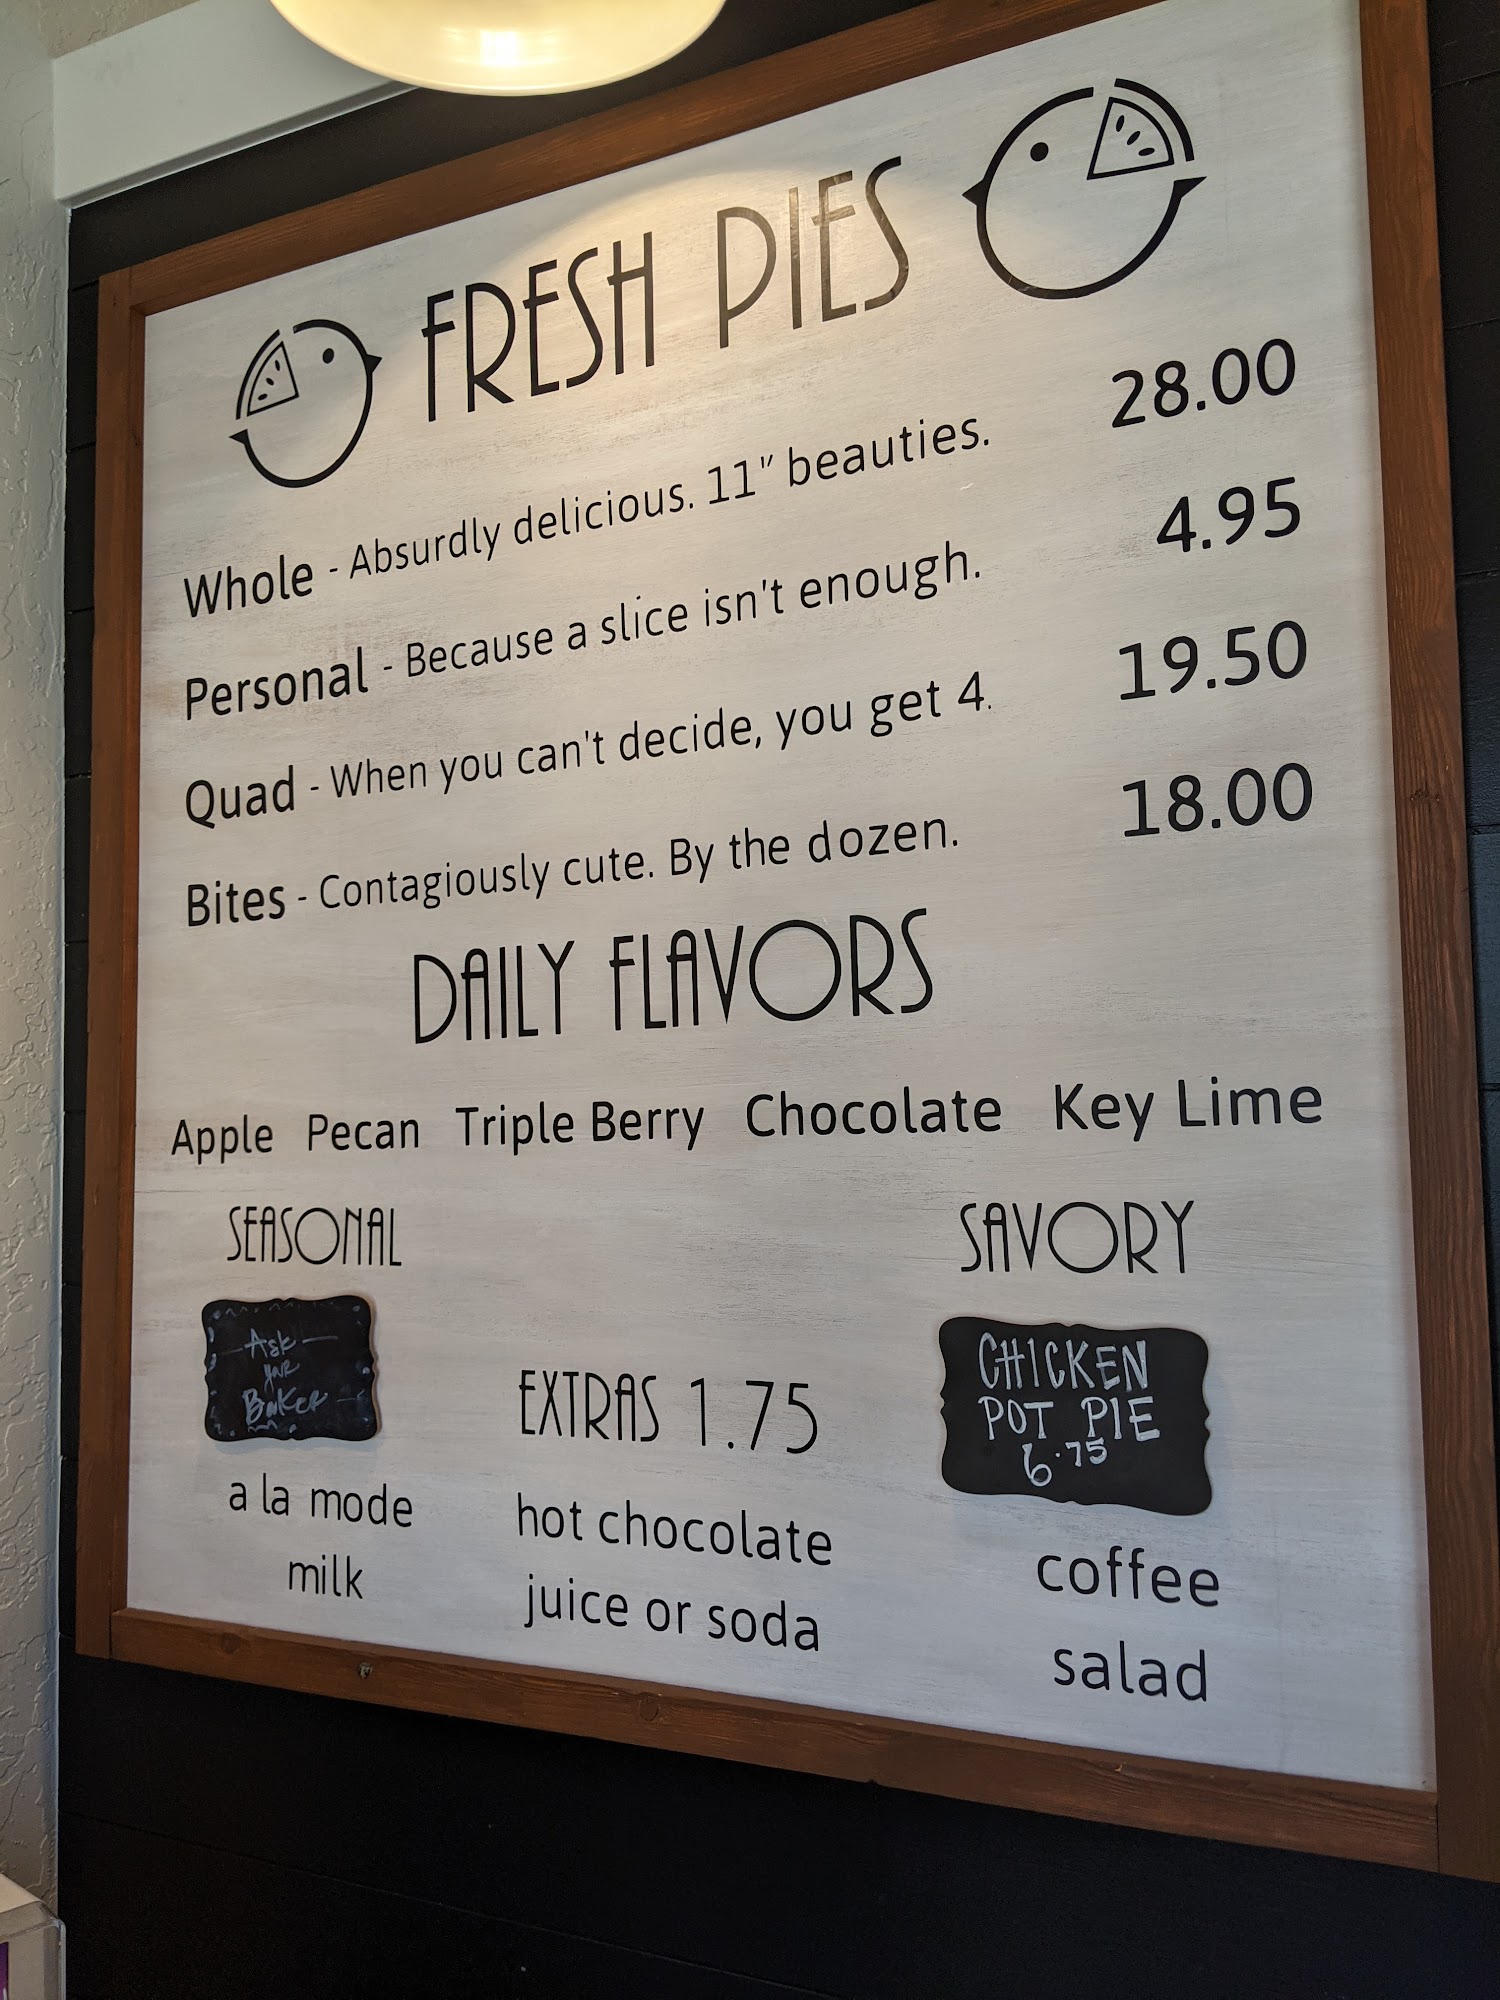 FRESH PIES
Whole - Absurdly delicious. 11" beauties. 28.00
Personal - Because a slice isn't enough. 4.95
Quad - When you can't decide, you get 4. 19.50
Bites - Contagiously cute. By the dozen. 18.00
DAILY FLAVORS
Apple Pecan Triple Berry Chocolate Key Lime
SEASONAL
Ask
your
Baker
SAVORY
CHICKEN
POT PIE
6.75
EXTRAS 1.75
a la mode hot chocolate coffee
milk juice or soda salad